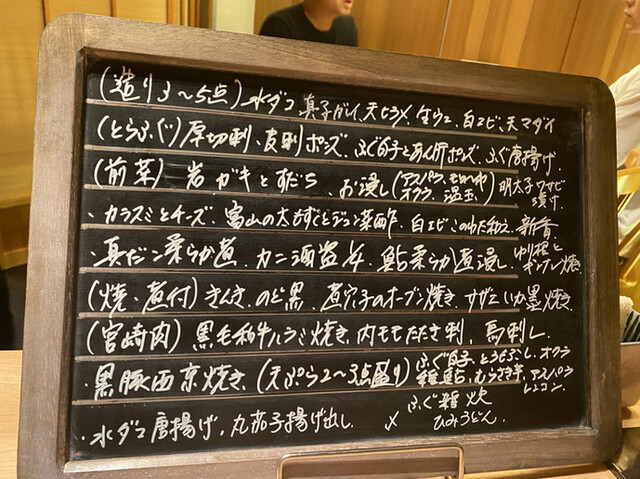 (造り3〜5点) 水ダコ 真子ガレイ、天ヒラメ 生ウニ、白エビ、天マダイ
(とらふぐ) 厚切刺、皮刺ポンズ、ふぐ白子とあん肝ポンズ、ふぐ唐揚げ.
(前菜) 岩ガキとすだち、お浸し(アスパラ、オクラ、温玉) 明太子ワサビ漬け.
・カラスミとチーズ、富山の太もずくとジュン菜酢、白エビこのわた和え、新香
・真だこ柔らか煮、カニ酒盗、鮎柔らか煮浸し、ゆり根とギンナン焼き
(焼・煮付) きんき、のど黒、煮穴子のオーブン焼き、サザエいか墨焼き、
(宮崎肉) 黒毛和牛ハラミ焼き、内モモたたき刺、馬刺し
・黒豚西京焼き、(天ぷら2〜3点盛り) ふぐ白子、とうもろこし、オクラ 稚鮎、むらさき芋、アスパラ レンコン.
・水ダコ唐揚げ、丸茄子揚げ出し 〆 ふぐ雑炊 ひみうどん.